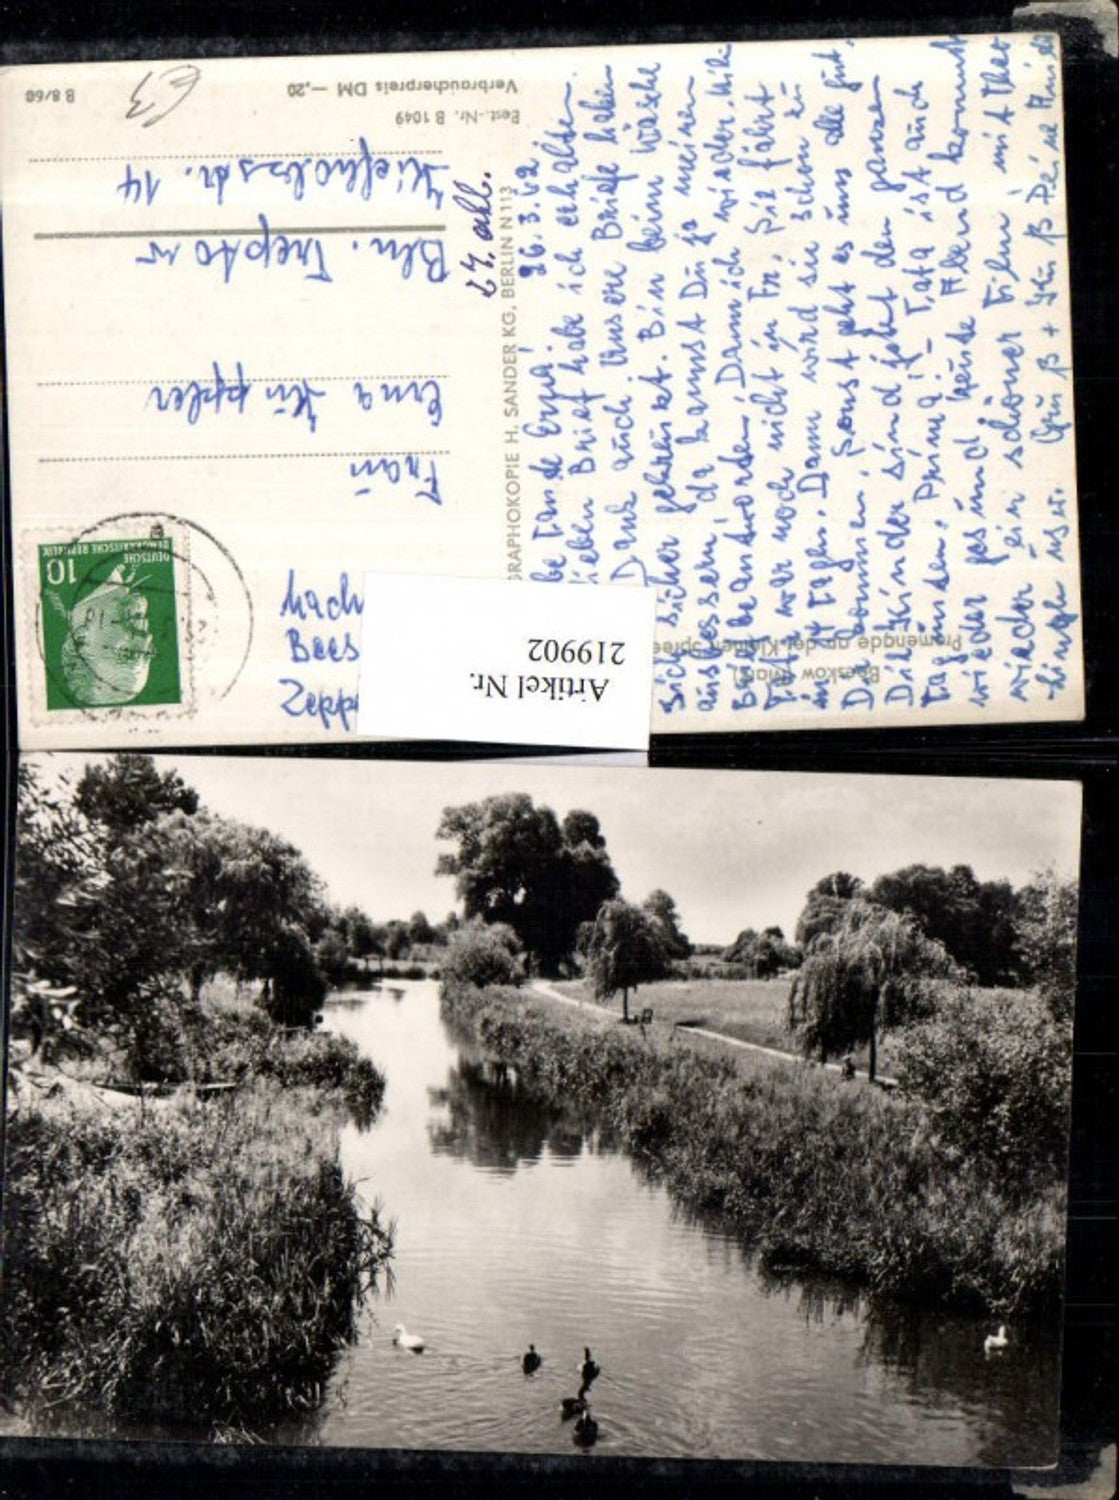 Beeskow (Mark)
Promenade an der Kleinen Spree
26.3.62
be Tante Erna!
lieben Brief habe ich erhalten.
Dank auch. Unsere Briefe haben
sich sicher gekreuzt. Bin beim Wäsche
ausbessern, da kannst Du ja meinen
Brief beantworten! Dann ich wieder. Mihi
war noch nicht in Fr. Sie fährt
in 14 Tagen. Dann wird sie schon zu
Dir kommen. Sonst geht es uns alle gut.
Die Kinder sind jetzt den ganzen
Tag draußen. Prima! Tata ist auch
wieder gesund. Heute Abend kommt
wieder ein schöner Film mit Theo
Lingen usw. Gruß + Kuß Deine
GRAPHOKOPIE H. SANDER KG. BERLIN N 113
Best.-Nr. B 1049
Verbraucherpreis DM —,20
B 8/60
DEUTSCHE
DEMOKRATISCHE REPUBLIK
10
Frau
Erna Küppler
Bln. Treptow
Kiefholzstr. 14
Artikel Nr.
219902